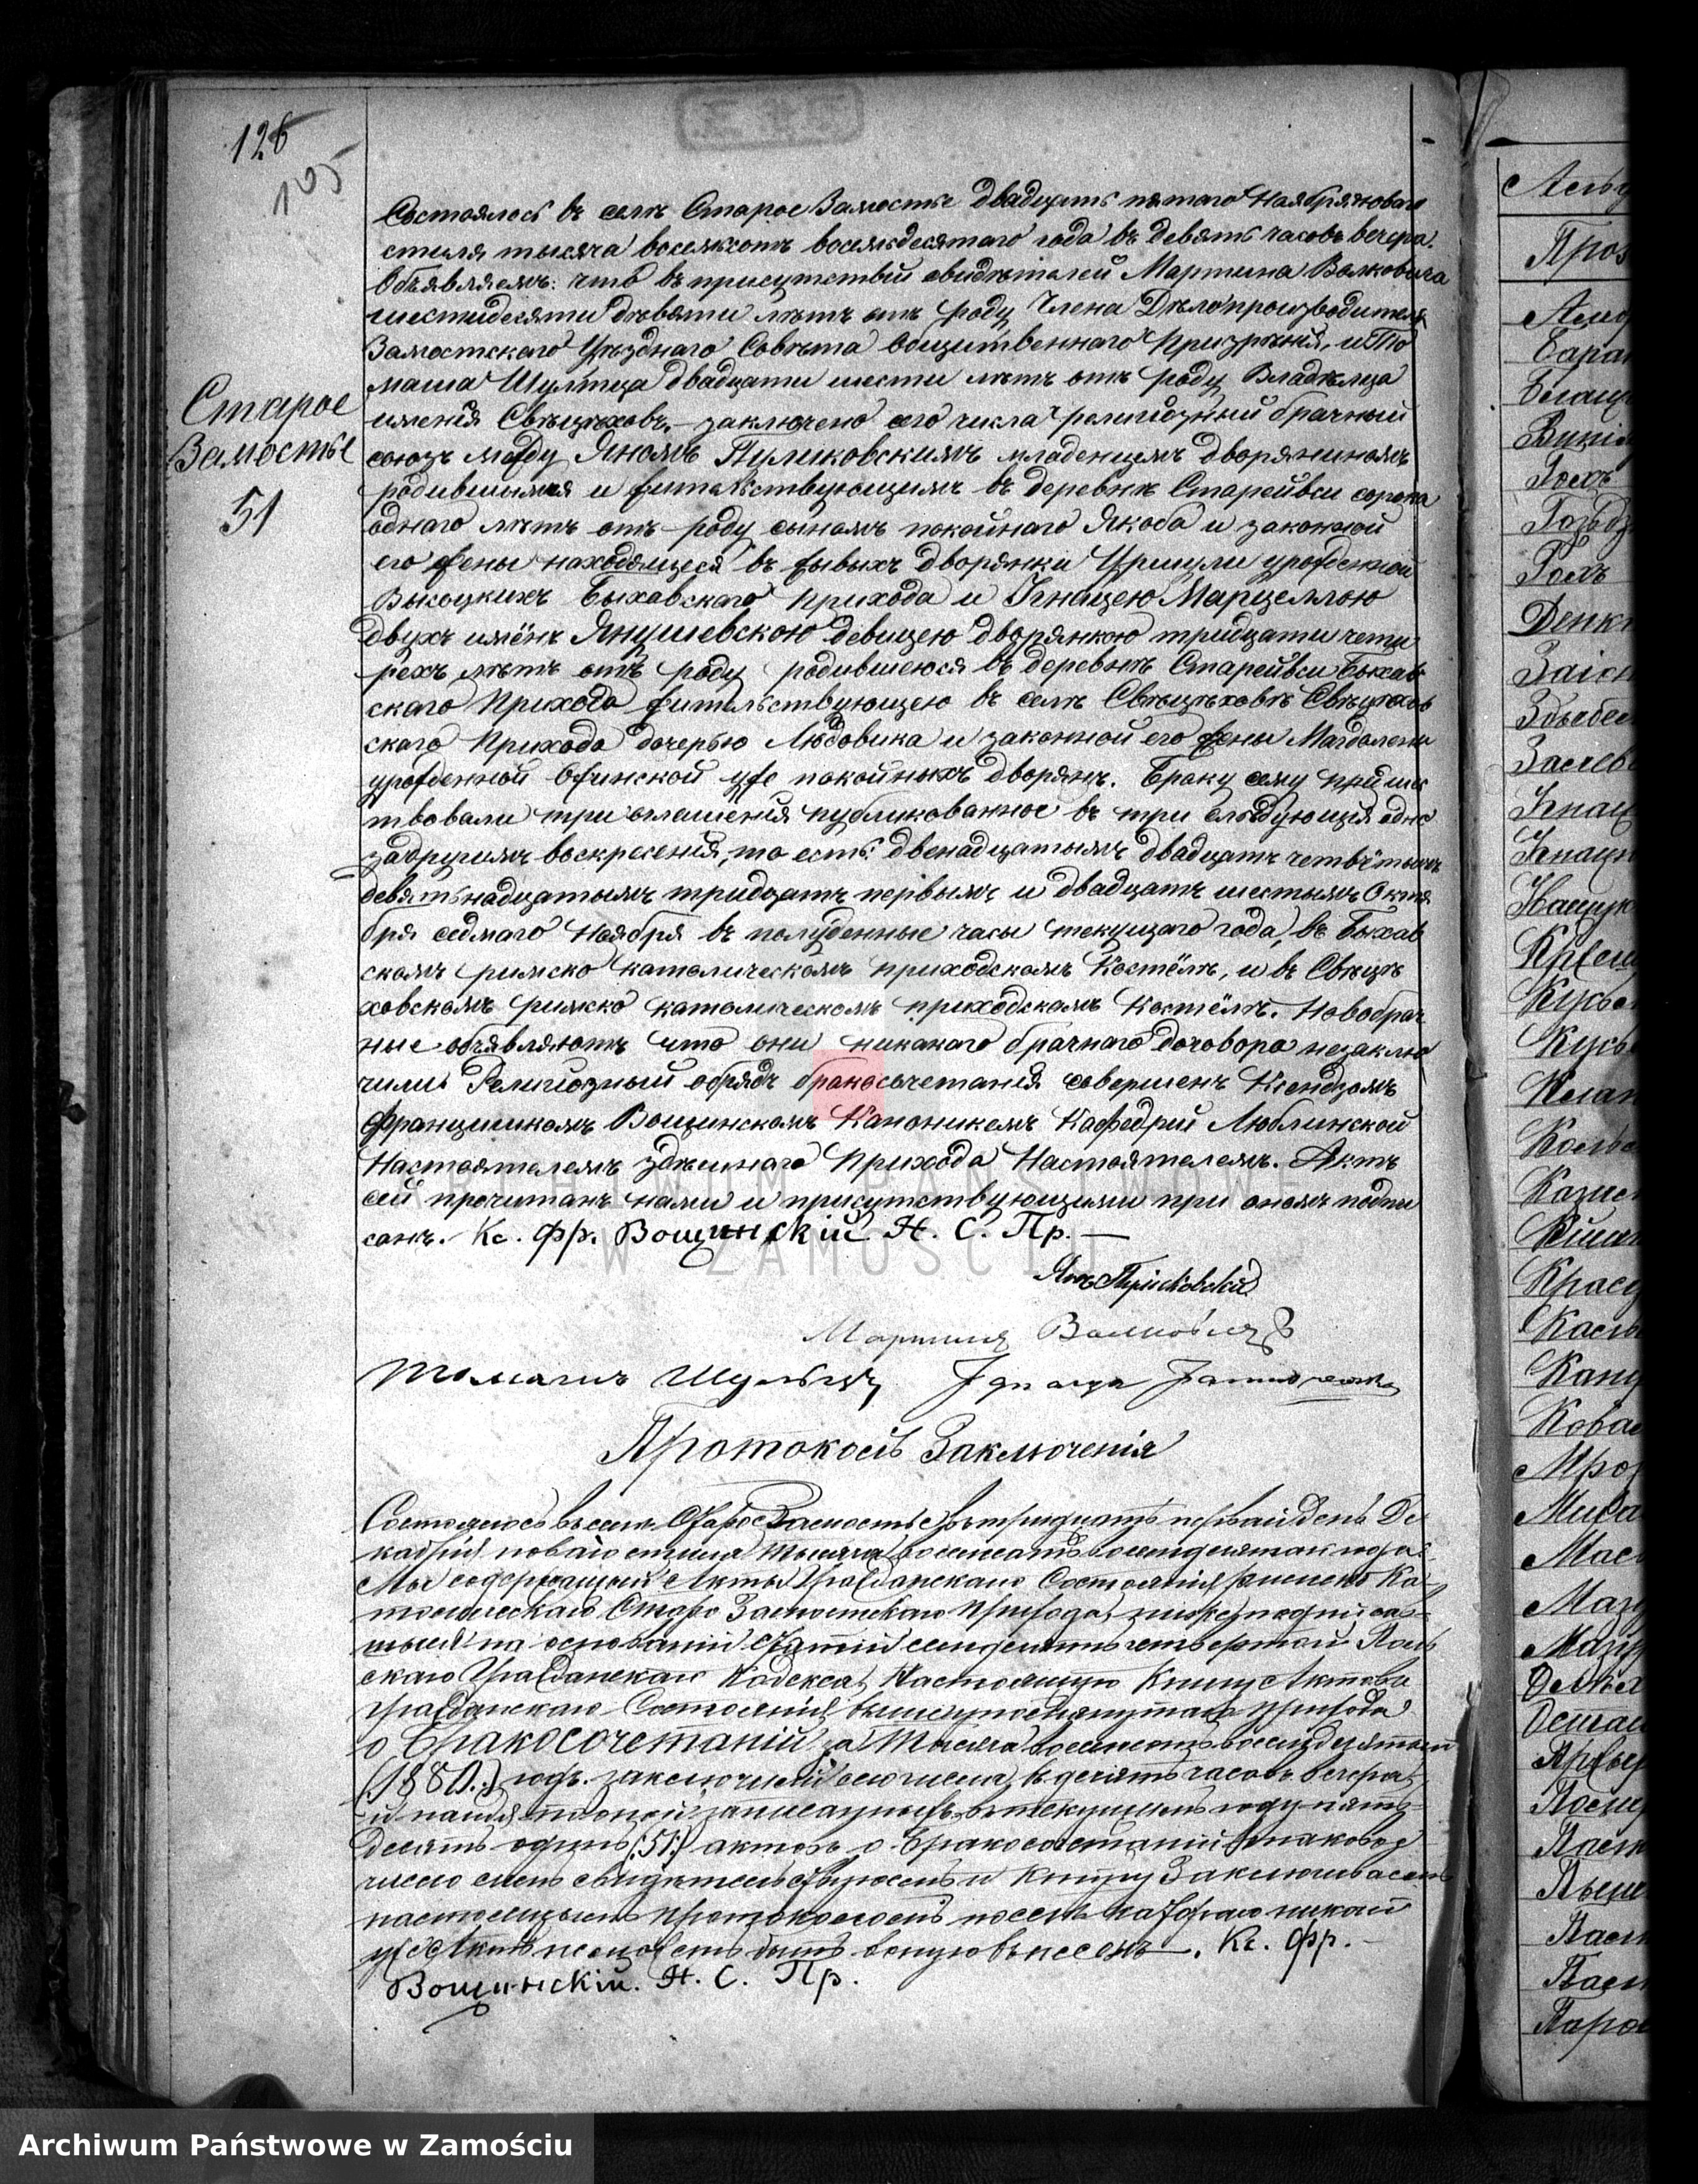 126
105
Старое
Замостье
51
Состоялось въ селѣ Старое Замостье двадцать пятаго Ноября новаго
стиля тысяча восемьсотъ восемьдесятаго года въ девять часовъ вечера.
Объявляемъ: что въ присутствіи свидѣтелей Мартина Волковича
шестидесяти девяти лѣтъ отъ роду Члена Дѣлопроизводителя
Замостскаго Уѣзднаго Совѣта Общественнаго Призрѣнія, и То
маша Шульца двадцати шести лѣтъ отъ роду Владѣльца
имѣнія Свѣцѣховъ,– заключено сего числа религіозный брачный
союзъ между Яномъ Пуликовскимъ младенцемъ дворяниномъ
родившимся и жительствующимъ въ деревнѣ Старейвси сорока
однаго лѣтъ отъ роду сыномъ покойнаго Якоба и законной
его жены находящеся въ живыхъ дворянки Уршули урожденной
Высоцкихъ Быхавскаго прихода и Игнацею Марцеллою
двухъ имёнъ Янушевскою девицею дворянкою тридцати четы
рехъ лѣтъ отъ роду родившеюся въ деревнѣ Старейвси Быхав
скаго Прихода жительствующею въ селѣ Свѣцѣховѣ Свѣцѣхов
скаго Прихода дочерью Людовика и законной его жены Магдалены
урожденной Ожинской уже покойныхъ дворянъ. Браку сему предшес
твовали три оглашенія публикованное въ три слѣдующія одно
задругимъ воскресенія, то есть: двенадцатымъ двадцать четвёртымъ
девятьнадцатымъ тридцать первымъ и двадцать шестымъ Октя
бря седмаго Ноября въ полуденные часы текущаго года, въ Быхав
скомъ римско католическомъ приходскомъ Костёлѣ, и въ Свѣцѣ
ховскомъ римско католическомъ приходскомъ Костёлѣ. Новобрач
ные объявляютъ что они никакаго брачнаго договора незаклю
чили Религіозный обрядъ бракосочетанія совершенъ Ксендзомъ
Францишкомъ Вошинскомъ Каноникемъ Кафедріи Люблинской
Настоятелемъ здѣшнаго Прихода Настоятелемъ. Актъ
сей прочитанъ нами и присутствующими при ономъ подпи
санъ. Кс. Фр. Вощинскій. Н. С. Пр. —
Янъ Пуликовскій
Мартинъ Волковичъ
Томашъ Шульцъ
Протоколъ Заключенія
Состоялось въ селѣ Старое Замостье въ тридцать первый день Де
кабря новаго стиля тысяча восемьсотъ восемьдесятаго года.
Мы содержащій Акты Гражданскаго Состоянія Римско Ка-
толическаго Старо Замостскаго Прихода, нижеподписав-
шыйся на основаніи статіи семьдесять четвертой Поль
скаго Гражданскаго Кодекса, Настоящую Книгу Актовъ
Гражданскаго Состоянія вышеупомянутаго Прихода
о Бракосочетаній за Тысяча восемьсотъ восемьдесятый
(1880.) годъ. заключили сего числа, въ десять часовъ вечера,
и нашли въ оной записанныхъ въ текущемъ году пять-
десять одинъ (:51:) актовъ о Бракосочетаній таковое
число симъ свидѣтельствуемъ и Книгу Заключиваемъ
настоящимъ протоколомъ послѣ котораго никакій
уже Актъ не можетъ быть въ оную внесенъ —. Кс. Фр. –
Вощинскій. Н. С. Пр.
ARCHIWUM PAŃSTWOWE
W ZAMOŚCIU
Archiwum Państwowe w Zamościu